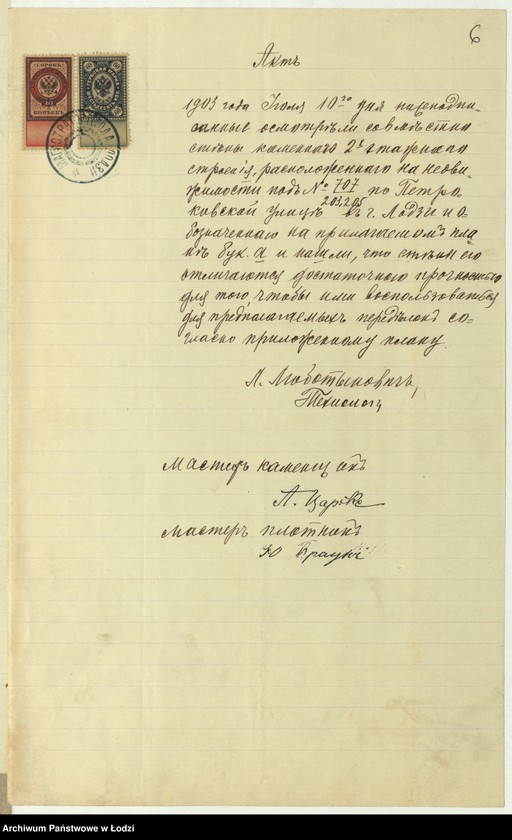 6
Актъ
СОРОКЪ
40
КОПѢЕКЪ
60
60
МАГИСТРАТЪ ЛОДЗИ
1903 года Іюля 10го дня нижеподпи-
санные осмотрѣли совмѣстно
стѣны каменнаго 2х этажнаго
строенія, расположеннаго на недви-
жимости подъ № 707 по Петро
203,205
ковской улицѣ въ г. Лодзи и о-
бозначеннаго на прилагаемомъ пла
нѣ бук. а и нашли, что стѣны его
отличаются достаточною прочностью
для того, чтобы ими воспользоваться
для предполагаемыхъ передѣлокъ со-
гласно приложенному плану.
Л. Люботыновичъ,
Технологъ
Мастеръ каменщикъ
А.
Мастеръ плотникъ
Ю Браунъ
Archiwum Państwowe w Łodzi